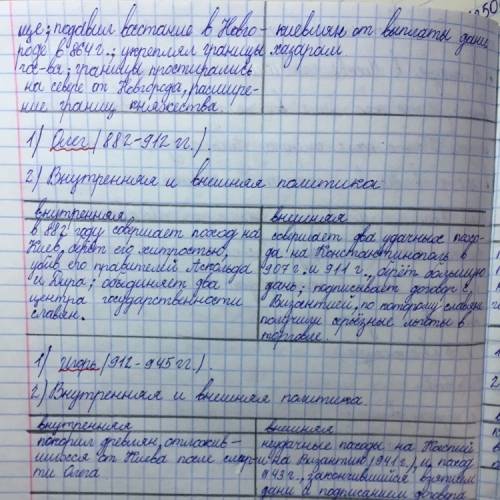 ще; подавил восстание в Новго-
роде в 864 г.; укреплял границы
гос-ва; границы простирались
на севере от Новгорода, расшире-
ние границ княжества.
киевлян от выплаты дани
хазарам
1) Олег (882-912 гг.).
2) Внутренняя и внешняя политика:
внутренняя
в 882 году совершает поход на
Киев, берёт его хитростью,
убив его правителей Аскольда
и Дира; объединяет два
центра государственности
славян.
внешняя
совершает два удачных похо-
да на Константинополь в
907 г. и 911 г., берёт большую
дань; подписывает договор с
Византией, по которому славяне
получили серьёзные льготы в
торговле.
1) Игорь (912-945 гг.).
2) Внутренняя и внешняя политика.
внутренняя
покорил древлян, отложив-
шихся от Киева после смер-
ти Олега.
внешняя
неудачные походы на Каспий
и на Византию (941 г.), и поход
943 г., закончившийся взятием
дани и подписанием договора